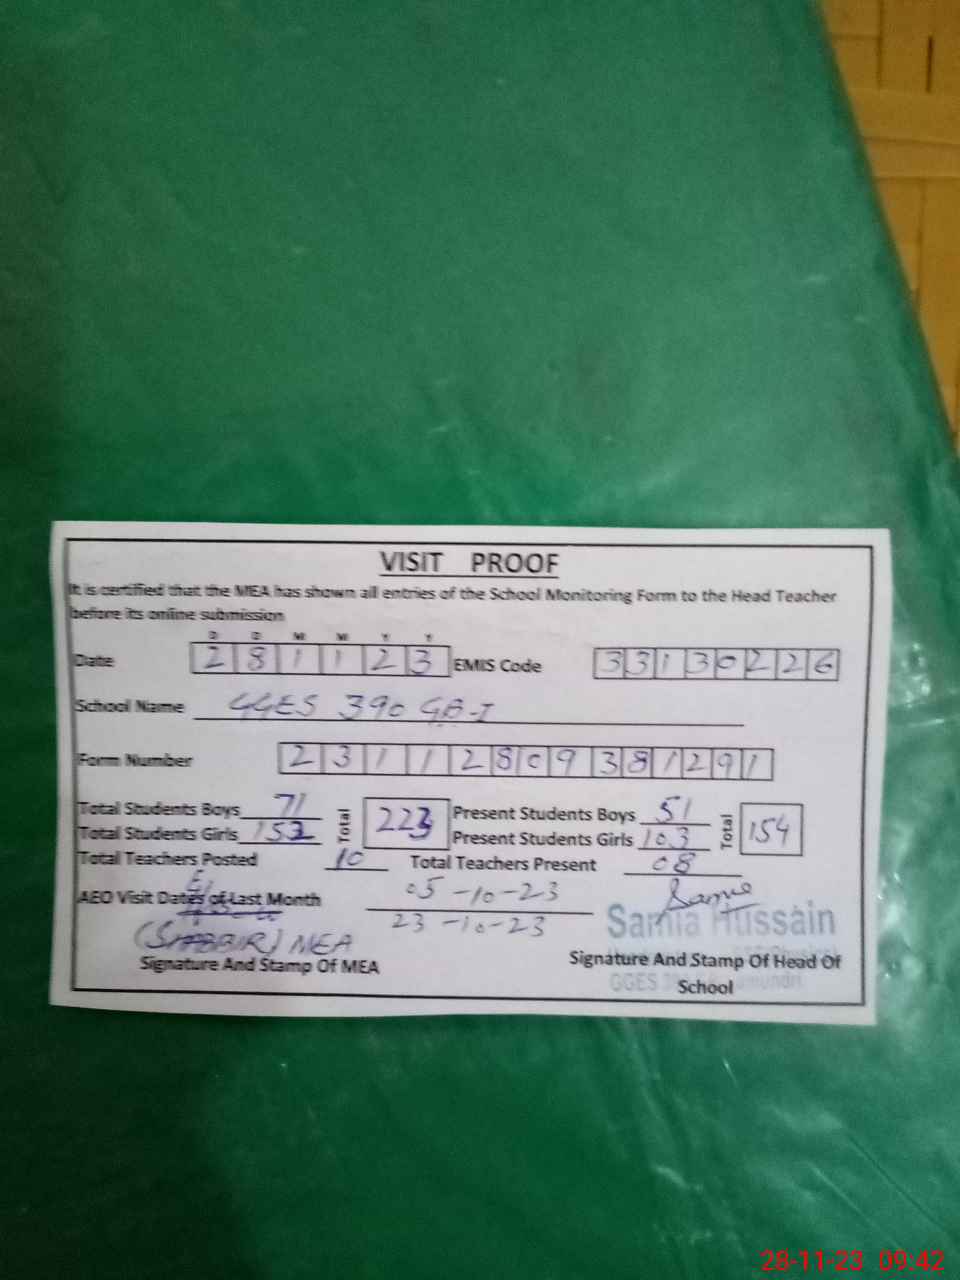 VISIT PROOF
It is certified that the MEA has shown all entries of the School Monitoring Form to the Head Teacher
before its online submission
D D M M Y Y
Date 2 8 1 1 2 3 EMIS Code 3 3 1 3 0 2 2 6
School Name GGES 390 GB-I
Form Number 2 3 1 1 2 8 0 9 3 8 1 2 9 1
Total Students Boys 71 Total 223 Present Students Boys 51 Total 154
Total Students Girls 152 Present Students Girls 103
Total Teachers Posted 10 Total Teachers Present 08
AEO Visit Dates of Last Month 05-10-23
23-10-23
Samia Hussain
(SHABBIR) MEA
Signature And Stamp Of MEA
Signature And Stamp Of Head Of
School
GGES
28-11-23 09:42